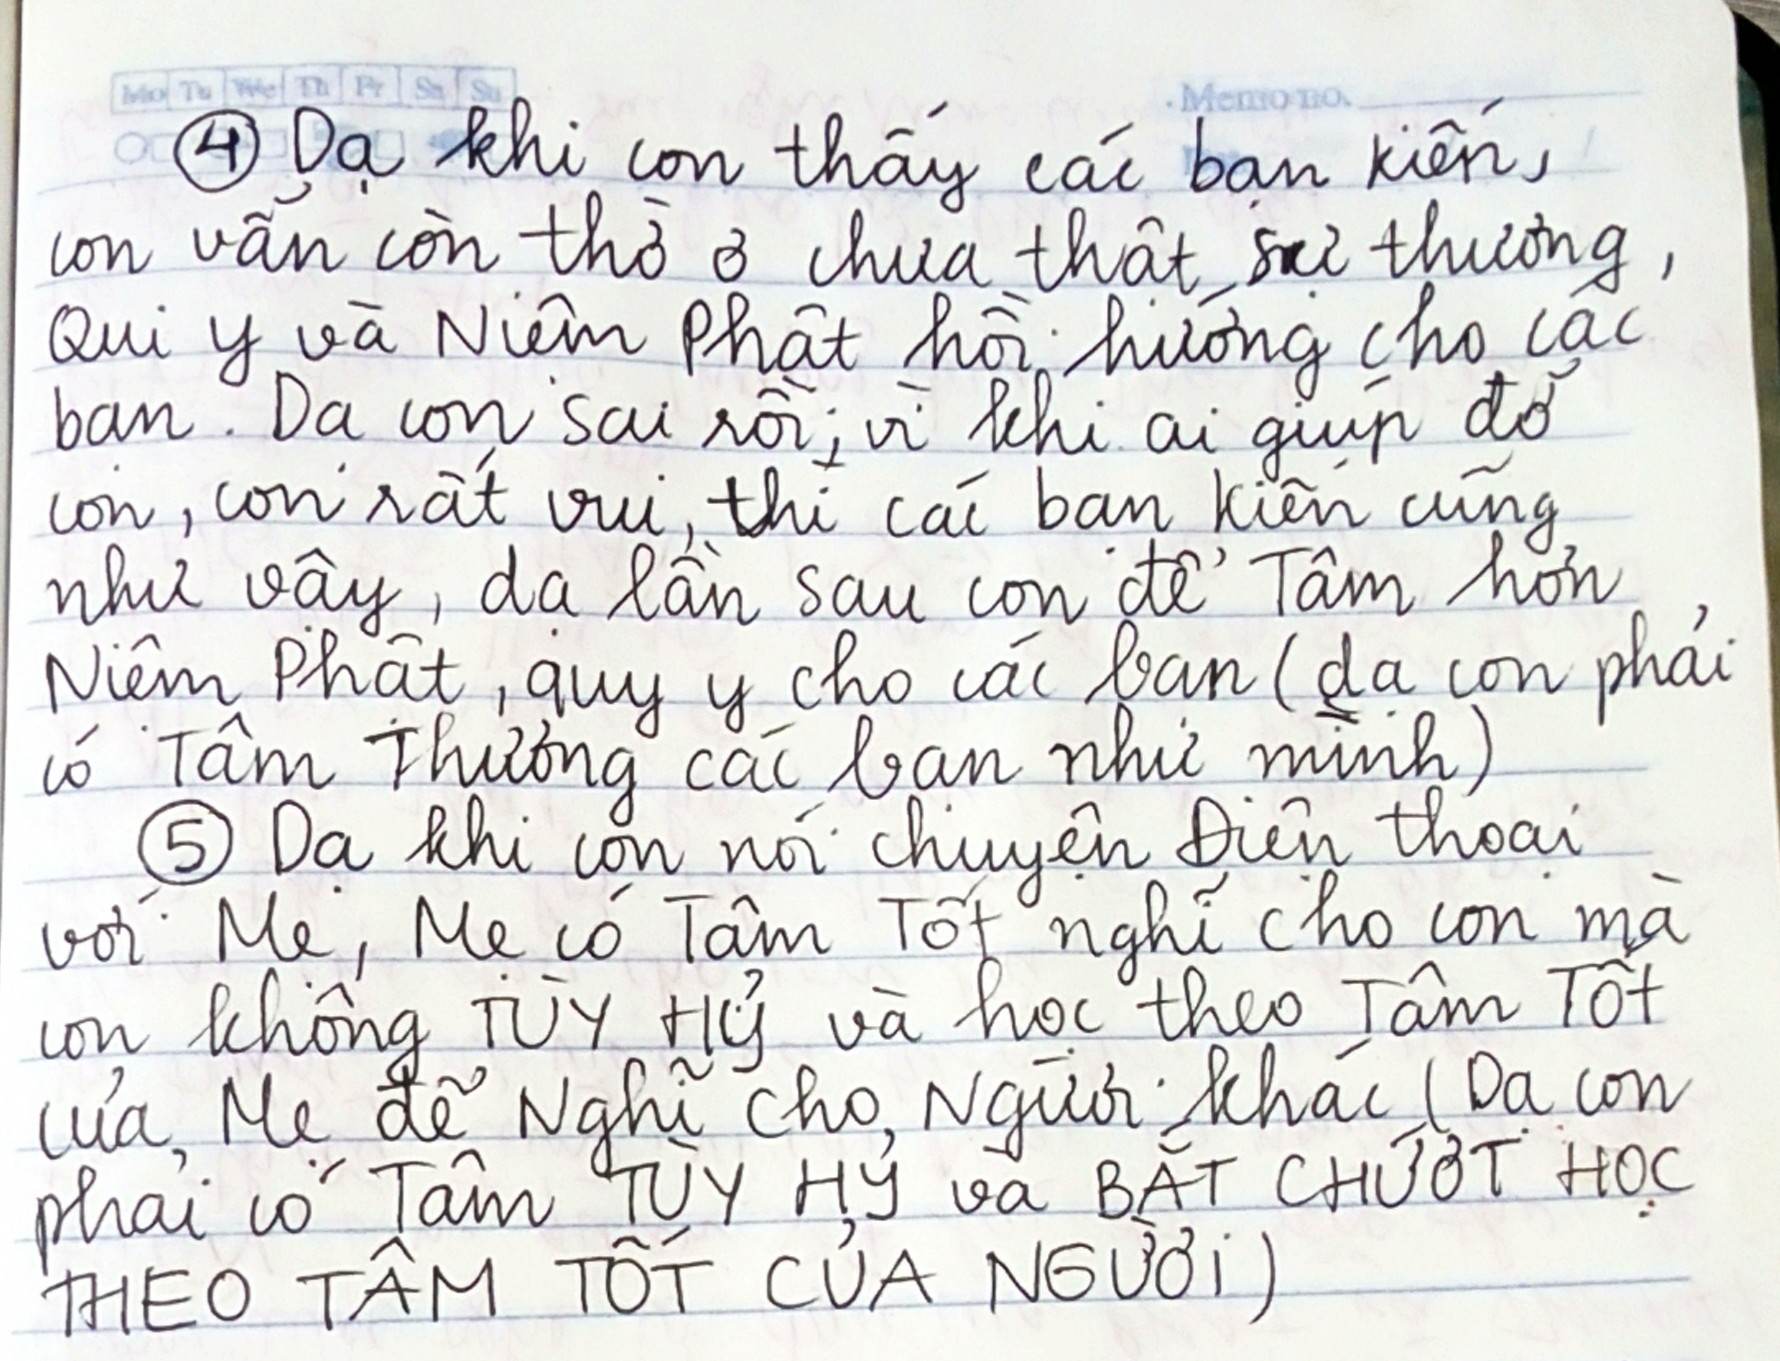 Mo Tu We Th Fr Sa Su
Memo no.
④ Dạ khi con thấy các bạn kiến,
con vẫn còn thờ ơ chưa thật sự thương,
Qui y và Niệm Phật hồi hướng cho các
bạn. Dạ con sai rồi, vì khi ai giúp đỡ
con, con rất vui, thì các bạn kiến cũng
như vậy, dạ lần sau con để Tâm hơn,
Niệm Phật, quy y cho các bạn (dạ con phải
có Tâm Thương các bạn như mình)
⑤ Dạ khi con nói chuyện Điện thoại
với Mẹ, Mẹ có Tâm Tốt nghĩ cho con mà
con không TÙY HỶ và học theo Tâm Tốt
của Mẹ để Nghĩ cho Người khác (Dạ con
phải có Tâm TÙY HỶ và BẮT CHƯỚT HỌC
THEO TÂM TỐT CỦA NGƯỜI)